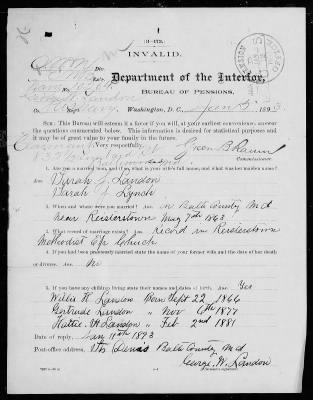 (3—173.)
INVALID.
Department of the Interior,
BUREAU OF PENSIONS,
Washington, D. C., Jan 5, 1893
SIR: This Bureau will esteem it a favor if you will, at your earliest convenience, answer
the questions enumerated below. This information is desired for statistical purposes and
it may be of great value to your family in the future.
Very respectfully,
Green B Raum
Commissioner.
Sarah J Landon
Sarah J Lynch
2. When and where were you married? Ans. in Balto County Md
near Reisterstown May 7th 1863
3. What record of marriage exists? Ans. Record in Reisterstown
Methodist Church
4. If you had been previously married state the name of your former wife and the date of her death
or divorce. Ans. no
5. If you have any children living state their names and dates of birth. Ans. Yes
Willie H Landon Born Sept 22 1866
Gertrude Landon " Nov 6th 1877
Hattie M Landon " Feb 2nd 1881
Date of reply, Jan 11th 1893
Post-office address, Balto County Md
George W. Landon